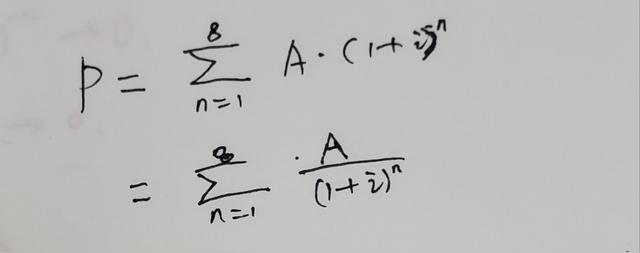 P = \sum_{n=1}^{8} A \cdot (1+i)^{-n}
= \sum_{n=1}^{8} \cdot \frac{A}{(1+i)^n}